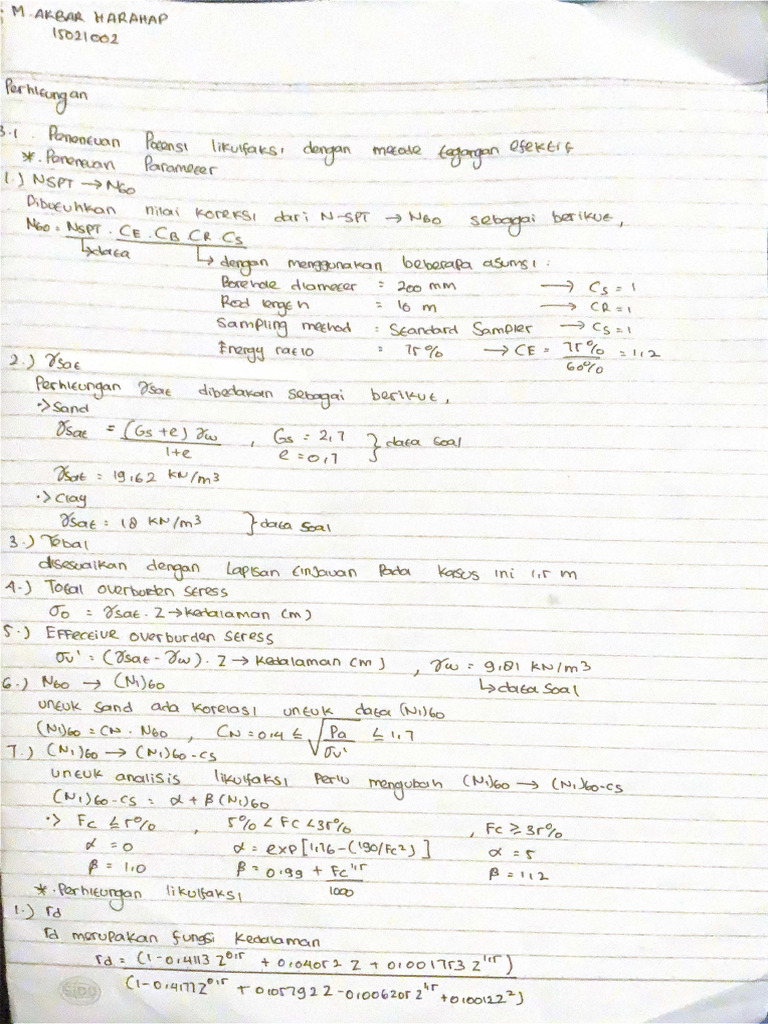 : M. AKBAR HARAHAP
15021002
Perhitungan
3.1. Penentuan Potensi likuifaksi dengan metode tegangan efektif
*. Penentuan Parameter
1.) NSPT → N60
Dibutuhkan nilai koreksi dari N-SPT → N60 sebagai berikut,
N60 = NSPT . CE . CB CR CS
↳ data ↳ dengan menggunakan beberapa asumsi :
Borehole diameter = 200 mm → CS = 1
Rod length = 10 m → CR = 1
Sampling method : Standard Sampler → CS = 1
Energy ratio = 75% → CE = 75%/60% = 1,2
2.) γsat
Perhitungan γsat dibedakan sebagai berikut,
·> Sand
γsat = (Gs + e) γw / 1+e , Gs = 2,7 e = 0,7 } data soal
γsat = 19,62 kN/m3
·> Clay
γsat = 18 kN/m3 } data soal
3.) Tebal
disesuaikan dengan lapisan tinjauan pada kasus ini 1,5 m
4.) Total overburden stress
σo = γsat . Z → kedalaman (m)
5.) Effective overburden stress
σv' = (γsat - γw) . Z → kedalaman (m) , γw = 9,81 kN/m3
↳ data soal
6.) N60 → (N1)60
untuk sand ada korelasi untuk data (N1)60
(N1)60 = CN . N60 , CN = 0,4 ≤ √(Pa/σv') ≤ 1,7
7.) (N1)60 → (N1)60-cs
untuk analisis likuifaksi perlu mengubah (N1)60 → (N1)60-cs
(N1)60-cs = α + β (N1)60
·> Fc ≤ 5% , 5% < Fc < 35% , Fc ≥ 35%
α = 0 α = exp [1,76 - (190/Fc²)] α = 5
β = 1,0 β = 0,99 + Fc^1,5/1000 β = 1,2
*. Perhitungan likuifaksi
1.) rd
rd merupakan fungsi kedalaman
rd = (1 - 0,4113 Z^0,5 + 0,04052 Z + 0,001753 Z^1,5)
(1 - 0,4177 Z^0,5 + 0,05729 Z - 0,006205 Z^1,5 + 0,00122 Z²)
SIDU